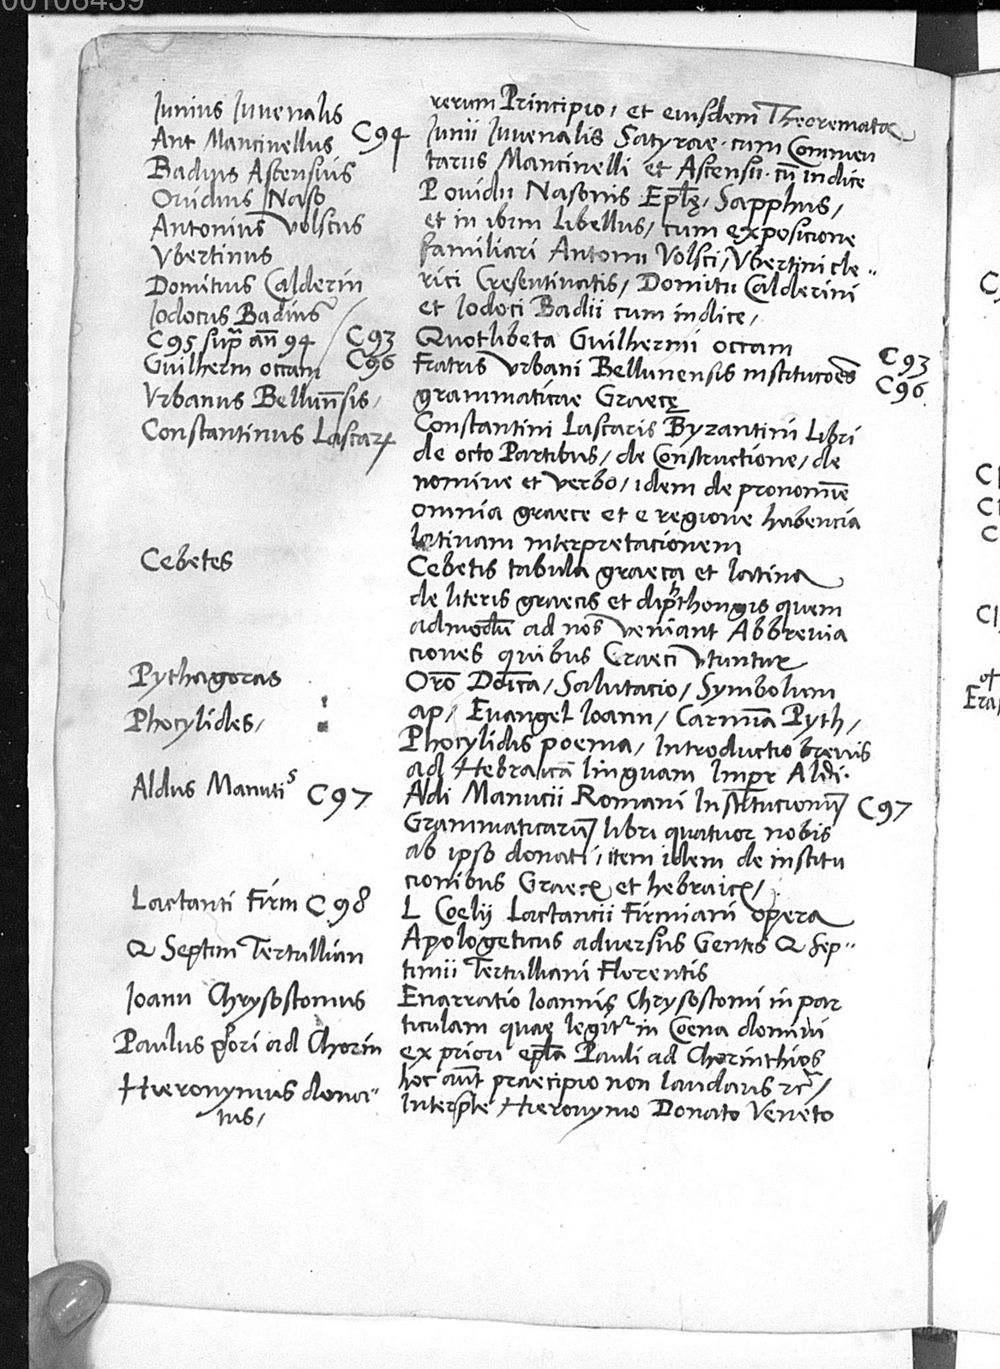 00106439
Junius Juvenalis
Ant Mancinellus C94
Badius Ascensius
Ovidius Naso
Antonius Volscus
Vbertinus
Domitius Calderin
Jodocus Badius
C95 supra añ 94 / C93
Guilherm occam C96
Vrbanus Belluñsis,
Constantinus Lascar
Cebetes
Pythagoras
Phocylides,
Aldus Manutiˢ C97
Lactanti Firm C98
Q Septim Tertullian
Joann Chrysostomus
Paulus pori ad Chorin
Hieronymus dona"
tus,
rerum Principio, et eiusdem Theoremata
Junii Juvenalis Satyrae cum Commen
tarus Mancinelli et Ascensii cũ indice
P ouidii Nasonis Eplę, Sapphus,
et in ibim libellus, cum exposicione
familiari Antonii Volsci, Vbertini cle"
rici Cresentinatis, Domitii Calderini
et Jodoci Badii cum indice,
Quotlibeta Guilhermi occam
fratris Vrbani Bellunensis institucões C93
grammaticae Graecę C96
Constantini Lascaris Byzantini Libri
de octo Partibus, de Constructione, de
nomine et verbo, idem de pronomie
omnia graece et e regione habencia
latinam interpretacionem
Cebetis tabula graeca et latina
de literis graecis et dipthongis quem
admodũ ad nos veniant Abbrevia
ciones quibus Graeci vtuntur
Orõ Doica, Salutacio, Symbolum
ap, Euangel Joann, Carmia Pyth,
Phocylidis poema, Introductio brevis
ad Hebraicã linguam Impr Aldi.
Aldi Manucii Romani Institucionũ C97
Grammaticarũ libri quatuor nobis
ab ipso donati, item idem de institu
cionibus Graece et hebraice,
L Coelij Lactancii firmiani opera
Apologeticus adversus Gentes Q Sep"
timii Tertulliani Florentis
Enarratio Joannis Chrysostomi in par
ticulam quae legitʳ in Coena domini
ex priori epla Pauli ad Chorinthios
hoc aut praecipio non laudans
Interpte Hieronymo Donato Veneto